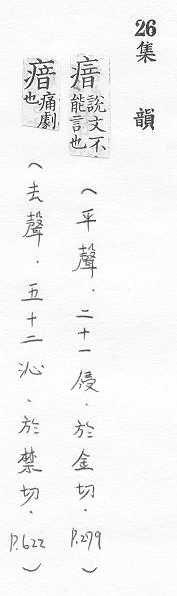 26集韻
瘖說文不能言也（平聲．二十一侵．於金切．P.279）
瘖痛劇也（去聲．五十二沁．於禁切．P.622）